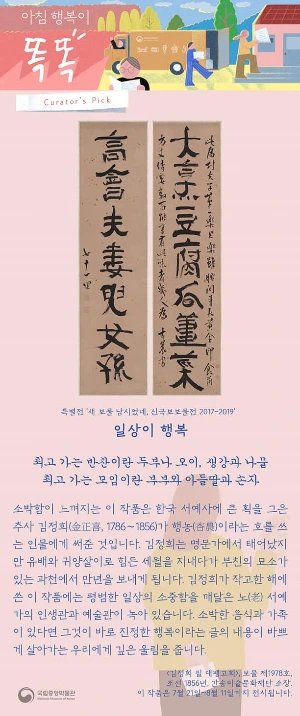 아침 행복이
똑똑
Curator's Pick
大烹豆腐瓜薑菜
高會夫妻兒女孫
七十一果
특별전 '새 보물 납시었네, 신국보보물전 2017-2019'
일상이 행복
최고 가는 반찬이란 두부나 오이, 생강과 나물
최고 가는 모임이란 부부와 아들딸과 손자
소박함이 느껴지는 이 작품은 한국 서예사에 큰 획을 그은
추사 김정희(金正喜, 1786~1856)가 행농(杏農)이라는 호를 쓰
는 인물에게 써준 것입니다. 김정희는 명문가에서 태어났지
만 유배와 귀양살이로 힘든 세월을 지내다가 부친의 묘소가
있는 과천에서 만년을 보내게 됩니다. 김정희가 작고한 해에
쓴 이 작품에는 평범한 일상의 소중함을 깨달은 노(老) 서예
가의 인생관과 예술관이 녹아 있습니다. 소박한 음식과 가족
이 있다면 그것이 바로 진정한 행복이라는 글의 내용이 바쁘
게 살아가는 우리에게 깊은 울림을 줍니다.
<김정희 필 대팽고회>, 보물 제1978호,
조선 1856년, 간송미술문화재단 소장.
이 작품은 7월 21일~8월 11일까지 전시됩니다.
국립중앙박물관